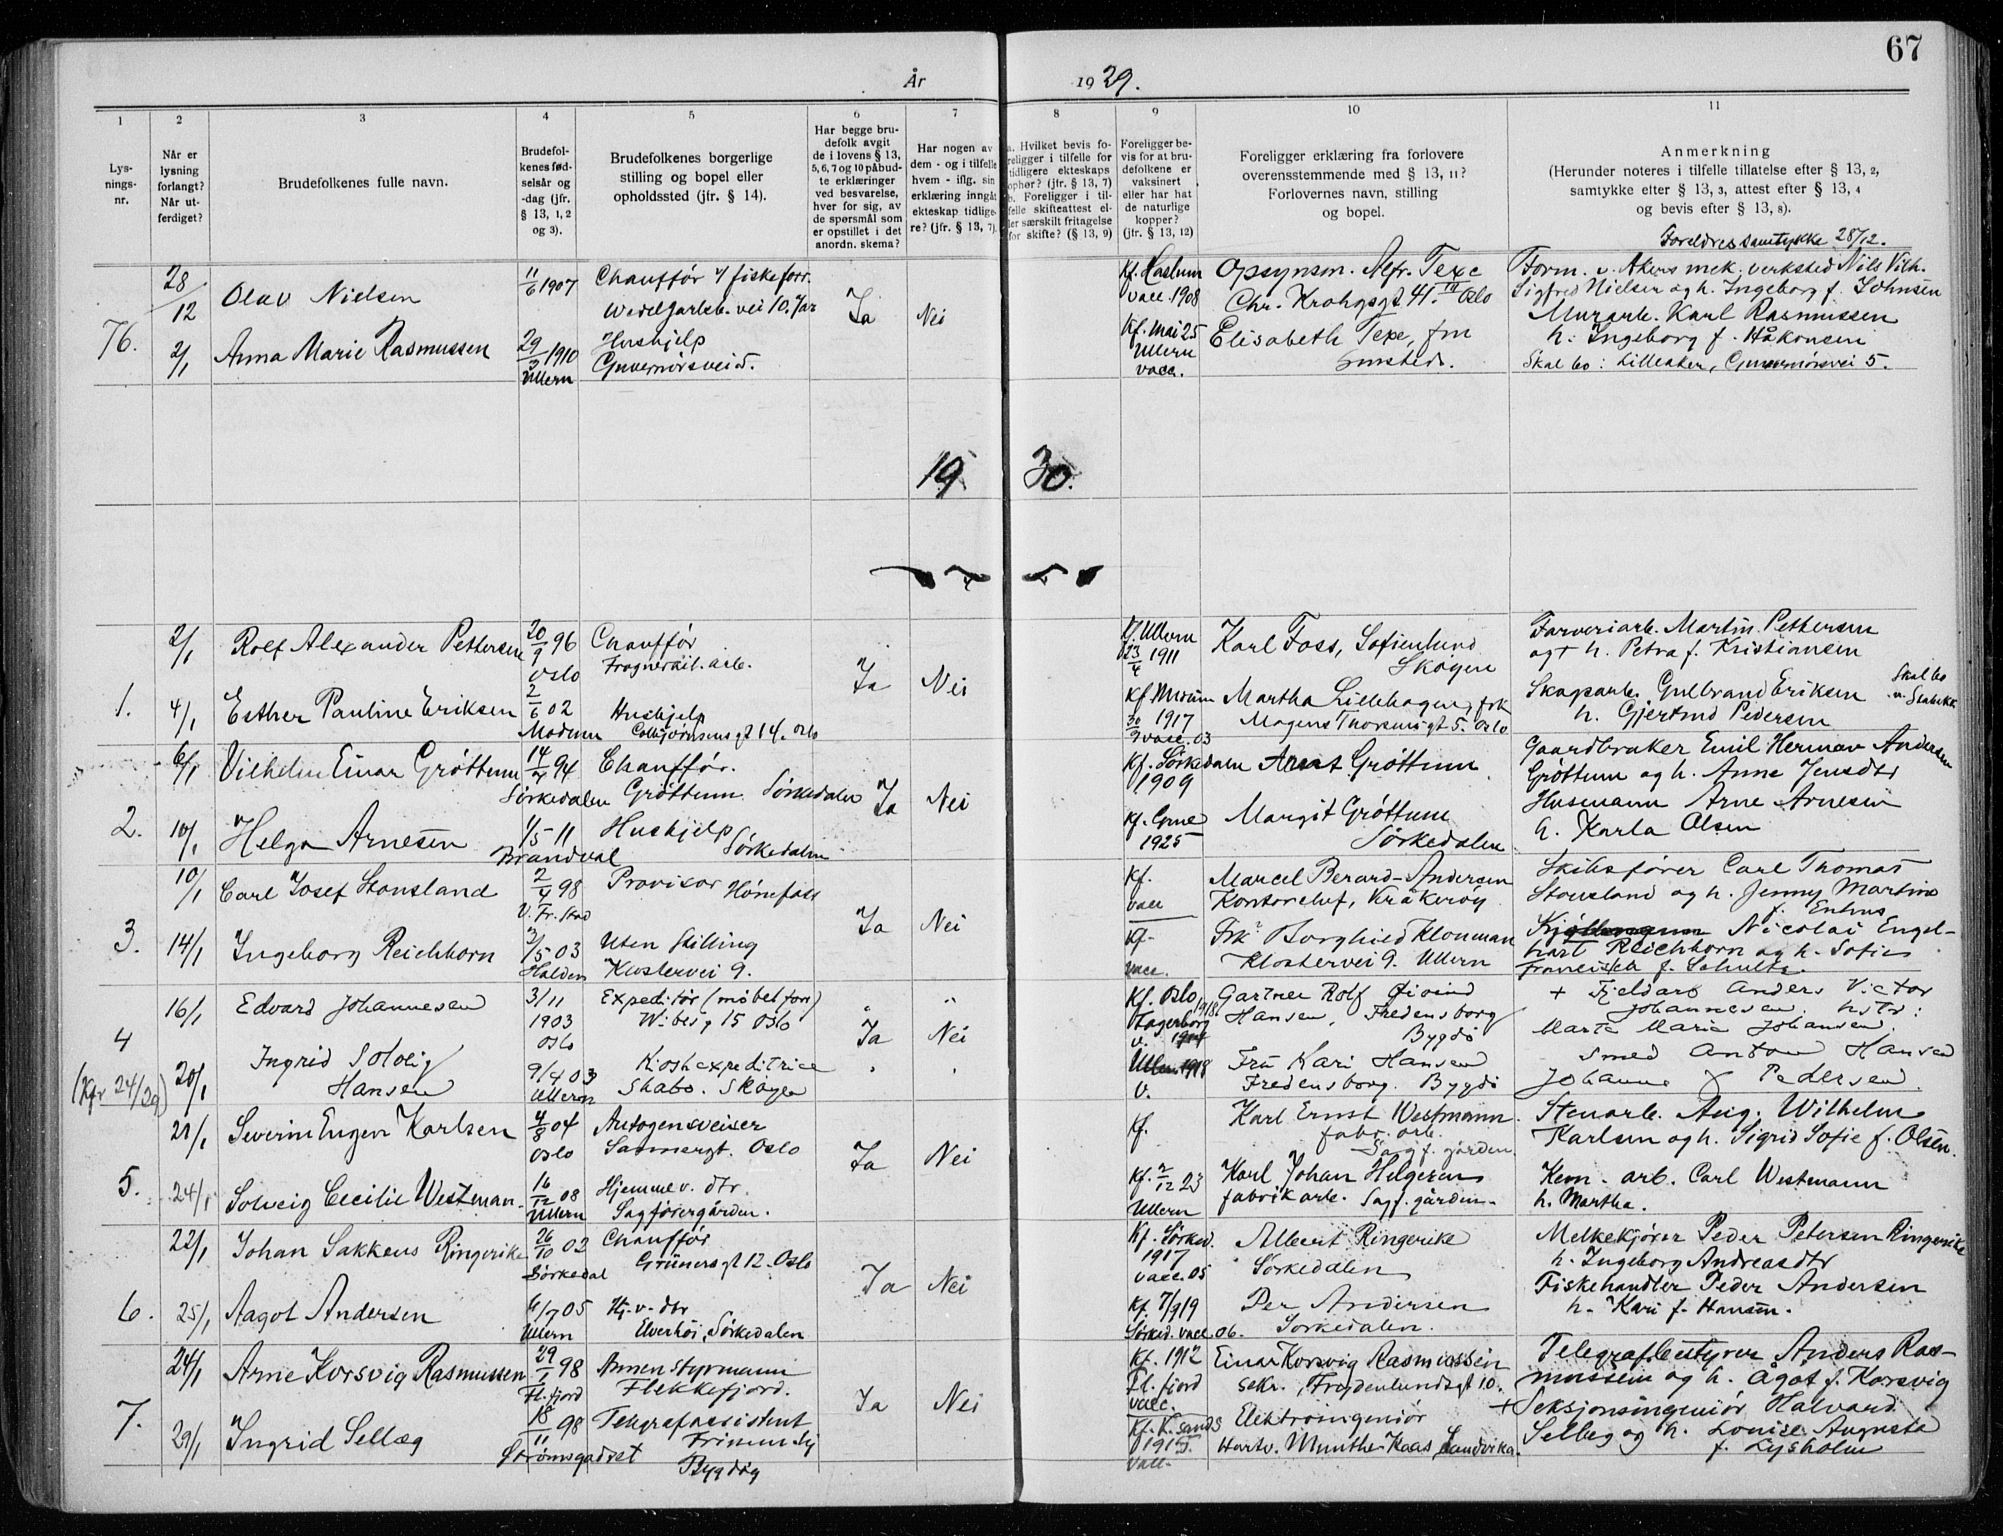 67
År 1929.
1 2 3 4 5 6 7 8 9 10 11
Lys-
nings-
nr.
Når er
lysning
forlangt?
Når ut-
ferdiget?
Brudefolkenes fulle navn.
Brudefol-
kenes fød-
selsår og
-dag (jfr.
§ 13, 1, 2
og 3).
Brudefolkenes borgerlige
stilling og bopel eller
opholdssted (jfr. § 14).
Har begge bru-
defolk avgit
de i lovens § 13,
5, 6, 7 og 10 påbud-
te erklæringer
ved besvarelse,
hver for sig, av
de spørsmål som
er opstillet i det
anordn. skema?
Har nogen av
dem - og i tilfelle
hvem - iflg. sin
erklæring inngåt
ekteskap tidlige-
re? (jfr. § 13, 7).
a. Hvilket bevis fo-
religger i tilfelle for
tidligere ekteskaps
ophør? (jfr. § 13, 7)
b. Foreligger i til-
felle skifteattest el-
ler særskilt fritagelse
for skifte? (§ 13, 9)
Foreligger be-
vis for at bru-
defolkene er
vaksinert
eller har hat
de naturlige
kopper?
(jfr. § 13, 12)
Foreligger erklæring fra forlovere
overensstemmende med § 13, 11?
Forlovernes navn, stilling
og bopel.
Anmerkning
(Herunder noteres i tilfelle tillatelse efter § 13, 2,
samtykke efter § 13, 3, attest efter § 13, 4
og bevis efter § 13, 8).
Foreldres samtykke 28/12.
76.
28/12
Olav Nielsen
11/6 1907
Chauffør v/ fiskeforr.
Wedel Jarlsb. vei 10. Jar
Ja Nei
Kf. Haslum
vacc. 1908
Opsynsm. Alfr. Texe
Chr. Krohgsgt 41. Oslo
Form. v. Akers mek. verksted Nils Vilh.
Sigfred Nielsen og h. Ingeborg f. Johnsen
2/1
Anna Marie Rasmussen
29/3 1910
Ullern
Hushjelp
Guvernørsvei 5.
Kf. mai 25
Ullern
vacc.
Elisabeth Texe, fru
smsteds.
Murarb. Karl Rasmussen
h. Ingeborg f. Håkonsen
Skal bo: Lilleaker, Guvernørsvei 5.
19 30.
1.
2/1
Rolf Alexander Pettersen
20/9 96
Oslo
Chauffør
Frognerseil. arb.
Ja Nei
Kf. Ullern
23/4 1911
Karl Foss, Sofienlund
Skøyen
Farveriarb. Martin Pettersen
og + h. Petra f. Kristiansen
4/1
Esther Pauline Eriksen
2/6 02
Modum
Hushjelp
Colbjørnsens gt 14. Oslo
Kf Modum
30/9 1917
vacc. 03
Martha Lillehagen, frk
Mogens Thorsens gt 5. Oslo
Skogsarb. Gulbrand Eriksen
h. Gjertrud Pedersen
Skal bo
v. Stabekk
2.
6/1
Vilhelm Einar Grøttum
14/7 94
Sørkedalen
Chauffør.
Grøttum Sørkedalen
Ja Nei
Kf. Sørkedalen
1909
Arnt Grøttum
Gaardbruker Emil Herman Andersen
Grøttum og h. Anne Jensdtr
10/1
Helga Arnesen
1/5 11
Brandval
Hushjelp
Sørkedalen
Kf. Grue
1925
Margit Grøttum
Sørkedalen
Husmann Arne Arnesen
h. Karla Olsen
3.
10/1
Carl Josef Stousland
2/4 98
V. Fr. stad
Provisor Hønefoss
Ja Nei
Kf.
vacc
Marcel Berard-Andersen
Kontorchef, Kråkerøy
Skibsfører Carl Thomas
Stousland og h. Jenny Martine
14/1
Ingeborg Reichborn
3/5 03
Halden
Uten stilling
Klostervei 9.
Kf.
vacc.
Frk. Borghild Klouman
Klostervei 9. Ullern
Nicolai Engel-
hart Reichborn og h. Sofie
Francisca f. Schultz.
4
(Kfr 24/29)
16/1
Edvard Johannesen
3/11
1903
Oslo
Expeditør (møbelforr)
Wibesg 15 Oslo
Ja Nei
Kf. Oslo
Fagerborg 1918
v.
Gartner Rolf Øivind
Hansen, Fredensborg
Bygdø
+ Fjeldarb Anders Victor
Johannesen. hstr:
Marta Marie Johansen.
20/1
Ingrid Solveig
Hansen
9/4 03
Ullern
Kioskexpeditrice
Skabo. Skøyen
Ullern 1918
v.
Fru Kari Hansen
Fredensborg. Bygdø
Smed Anton Hansen
Johanne f Pedersen
5.
21/1
Severin Eugen Karlsen
4/8 04
Oslo
Autogensveiser
Sannergt. Oslo
Ja Nei
Kf.
Karl Ernst Westmann.
fabr. arb.
Sagf. gården
Stenarb. Aug. Wilhelm
Karlsen og h. Sigrid Sofie f. Olsen.
24/1
Solveig Cecilie Westman.
16/12 08
Ullern
Hjemmev. dtr.
Sagførergården.
Kf. 2/12 23
Ullern
Karl Johan Helgesen
fabrikarb. Sagf. gården.
Kem. arb. Carl Westmann
h. Martha.
6.
22/1
Johan Sakkeus Ringerike
26/10 02
Sørkedal
Chauffør
Grüners gt 12. Oslo
Ja Nei
Kf. Sørked.
1917
vacc. 05
Albert Ringerike
Sørkedalen
Melkekjører Peder Petersen Ringerike
h. Ingeborg Andreasdtr
25/1
Aagot Andersen
6/7 05
Ullern
Hj. v. dtr
Elverhøi, Sørkedalen
Kf. 7/9 19
Sørked. vacc. 06.
Per Andersen
Sørkedalen.
Fiskehandler Peder Andersen
h. Kari f. Hansen.
7.
24/1
Arne Korsvig Rasmussen
29/1 98
Fl. fjord
Annen styrmann
Flekkefjord.
Ja Nei
Kf. 1912
Fl. fjord
vacc.
Einar Korsvig Rasmussen
sekr., Frydenlundsgt 10.
Telegrafbestyrer Anders Ras-
mussen og h. Ågot f. Korsvig
29/1
Ingrid Selleg
18/11 98
Strømsgodset
Telegrafassistent
Bygdøy
Kf. K. sand S
vacc.
Elektroingeniør
Hartv. Munthe-Kaas, Sandvika.
+ Seksjonsingeniør Halvard
Selleg og h. Louise Augusta
f. Lysholm